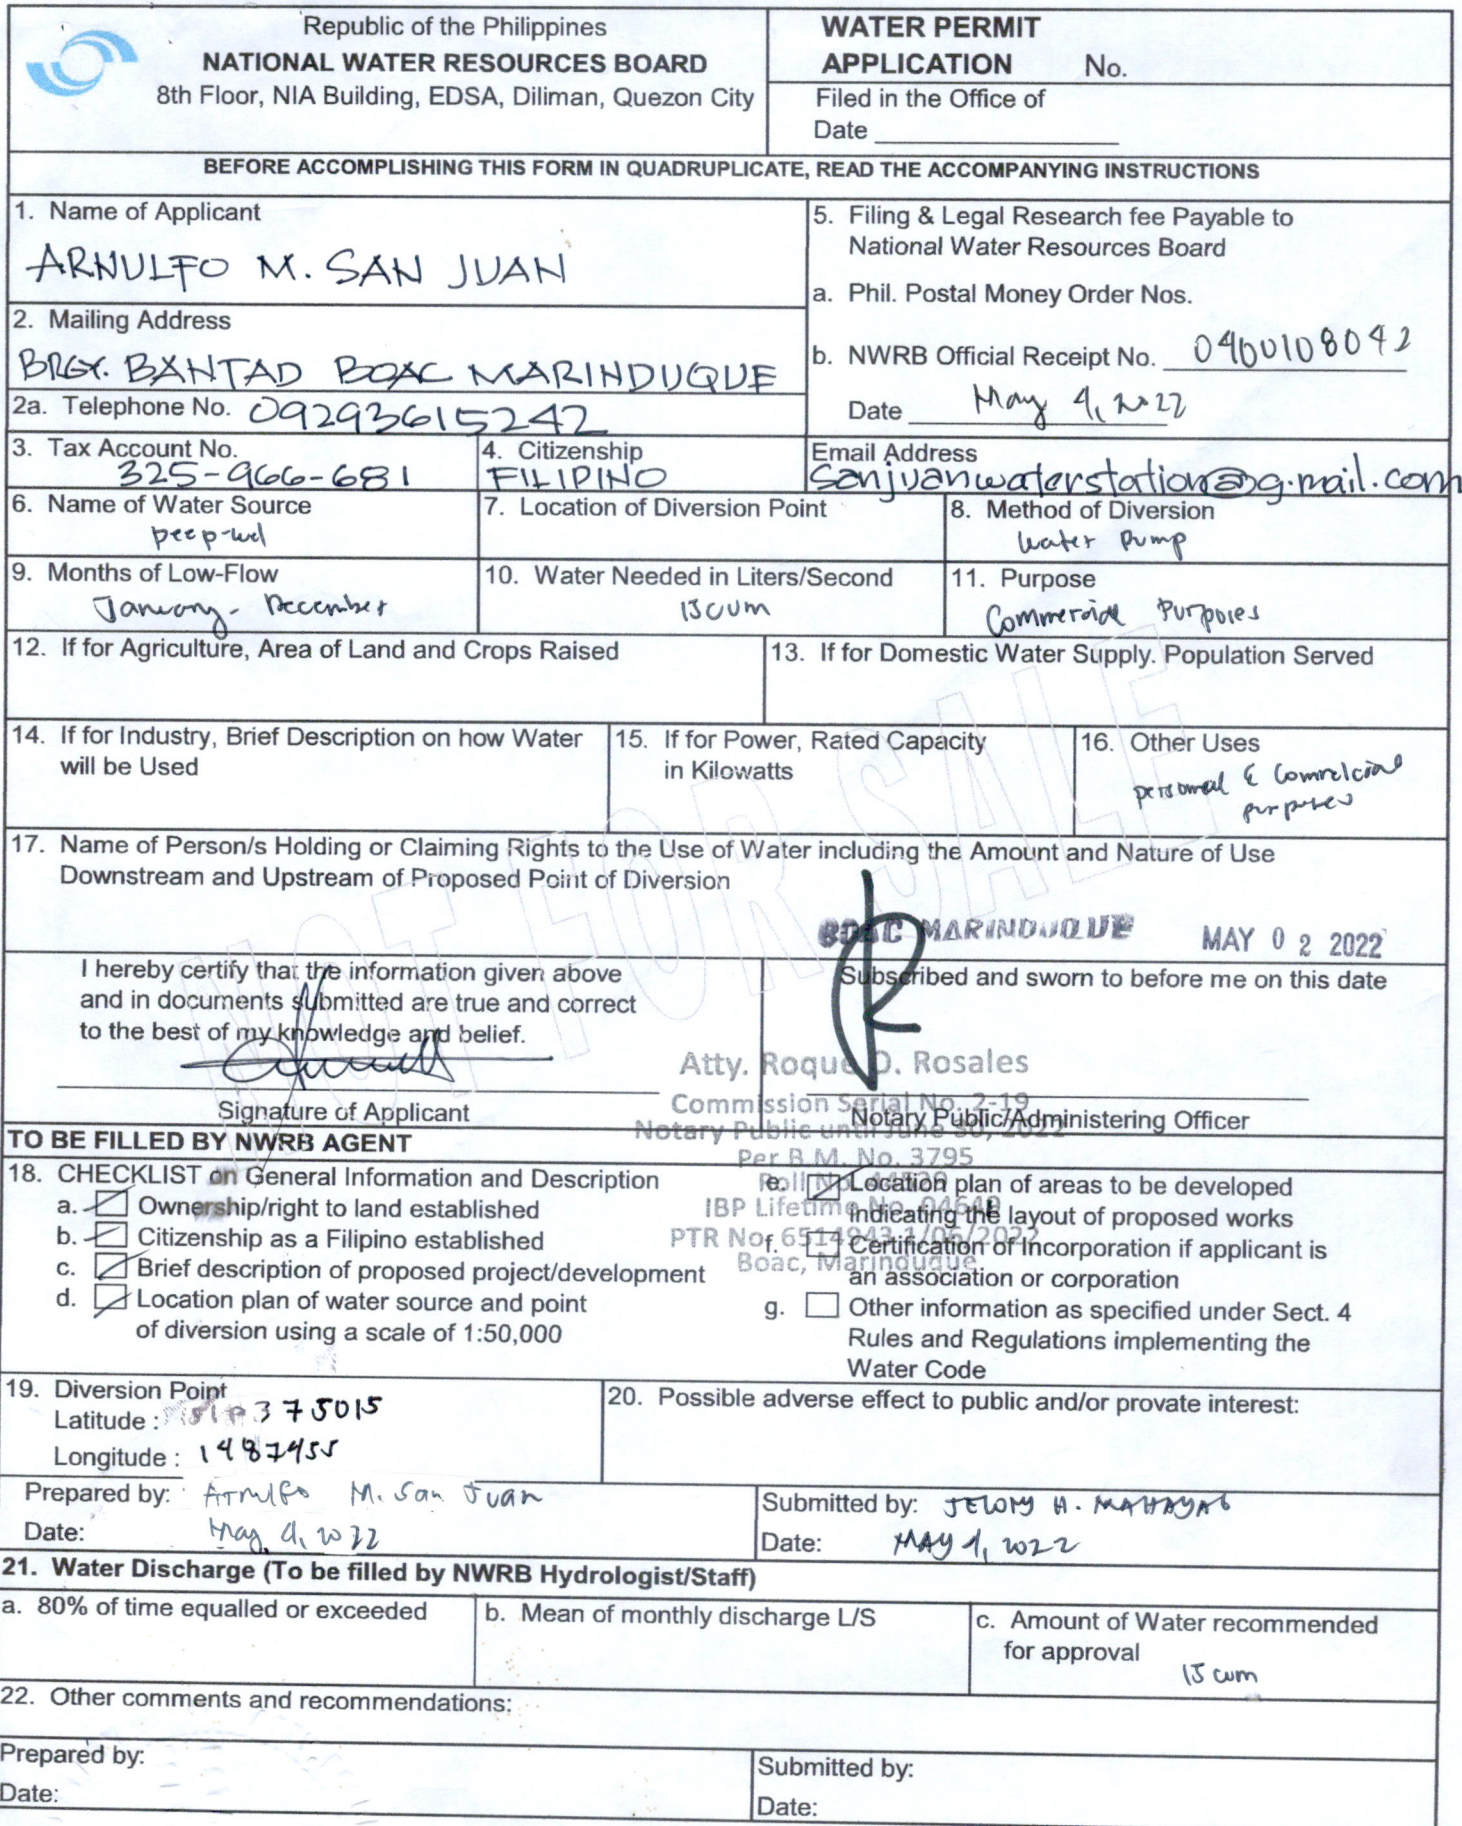 Republic of the Philippines
NATIONAL WATER RESOURCES BOARD
8th Floor, NIA Building, EDSA, Diliman, Quezon City
WATER PERMIT
APPLICATION No.
Filed in the Office of
Date
BEFORE ACCOMPLISHING THIS FORM IN QUADRUPLICATE, READ THE ACCOMPANYING INSTRUCTIONS
1. Name of Applicant
ARNULFO M. SAN JUAN
2. Mailing Address
BRGY. BANTAD BOAC MARINDUQUE
2a. Telephone No. 09293615242
5. Filing & Legal Research fee Payable to
National Water Resources Board
a. Phil. Postal Money Order Nos.
b. NWRB Official Receipt No. 0400108042
Date May 4, 2022
3. Tax Account No.
325-966-681
4. Citizenship
FILIPINO
Email Address
sanjuanwaterstation@g.mail.com
6. Name of Water Source
7. Location of Diversion Point
8. Method of Diversion
Water Pump
9. Months of Low-Flow
January - December
10. Water Needed in Liters/Second
15 cum
11. Purpose
Commercial Purposes
12. If for Agriculture, Area of Land and Crops Raised
13. If for Domestic Water Supply. Population Served
14. If for Industry, Brief Description on how Water
will be Used
15. If for Power, Rated Capacity
in Kilowatts
16. Other Uses
personal & Commercial
purposes
17. Name of Person/s Holding or Claiming Rights to the Use of Water including the Amount and Nature of Use
Downstream and Upstream of Proposed Point of Diversion
NOT FOR SALE
BOAC MARINDUQUE MAY 02 2022
I hereby certify that the information given above
and in documents submitted are true and correct
to the best of my knowledge and belief.
Signature of Applicant
Subscribed and sworn to before me on this date
Atty. Roque D. Rosales
Commission Serial No. 2-19
Notary Public until June 30, 2022
Notary Public/Administering Officer
Per B.M. No. 3795
Roll No.
IBP Lifetime No. 04649
PTR No. 6514943 1/06/2022
Boac, Marinduque
TO BE FILLED BY NWRB AGENT
18. CHECKLIST on General Information and Description
a. Ownership/right to land established
b. Citizenship as a Filipino established
c. Brief description of proposed project/development
d. Location plan of water source and point
of diversion using a scale of 1:50,000
e. Location plan of areas to be developed
indicating the layout of proposed works
f. Certification of Incorporation if applicant is
an association or corporation
g. Other information as specified under Sect. 4
Rules and Regulations implementing the
Water Code
19. Diversion Point
Latitude : 375015
Longitude : 1487455
20. Possible adverse effect to public and/or provate interest:
Prepared by: Arnulfo M. San Juan
Date: May 4, 2022
Submitted by:
Date: MAY 4, 2022
21. Water Discharge (To be filled by NWRB Hydrologist/Staff)
a. 80% of time equalled or exceeded
b. Mean of monthly discharge L/S
c. Amount of Water recommended
for approval
15 cum
22. Other comments and recommendations:
Prepared by:
Date:
Submitted by:
Date: